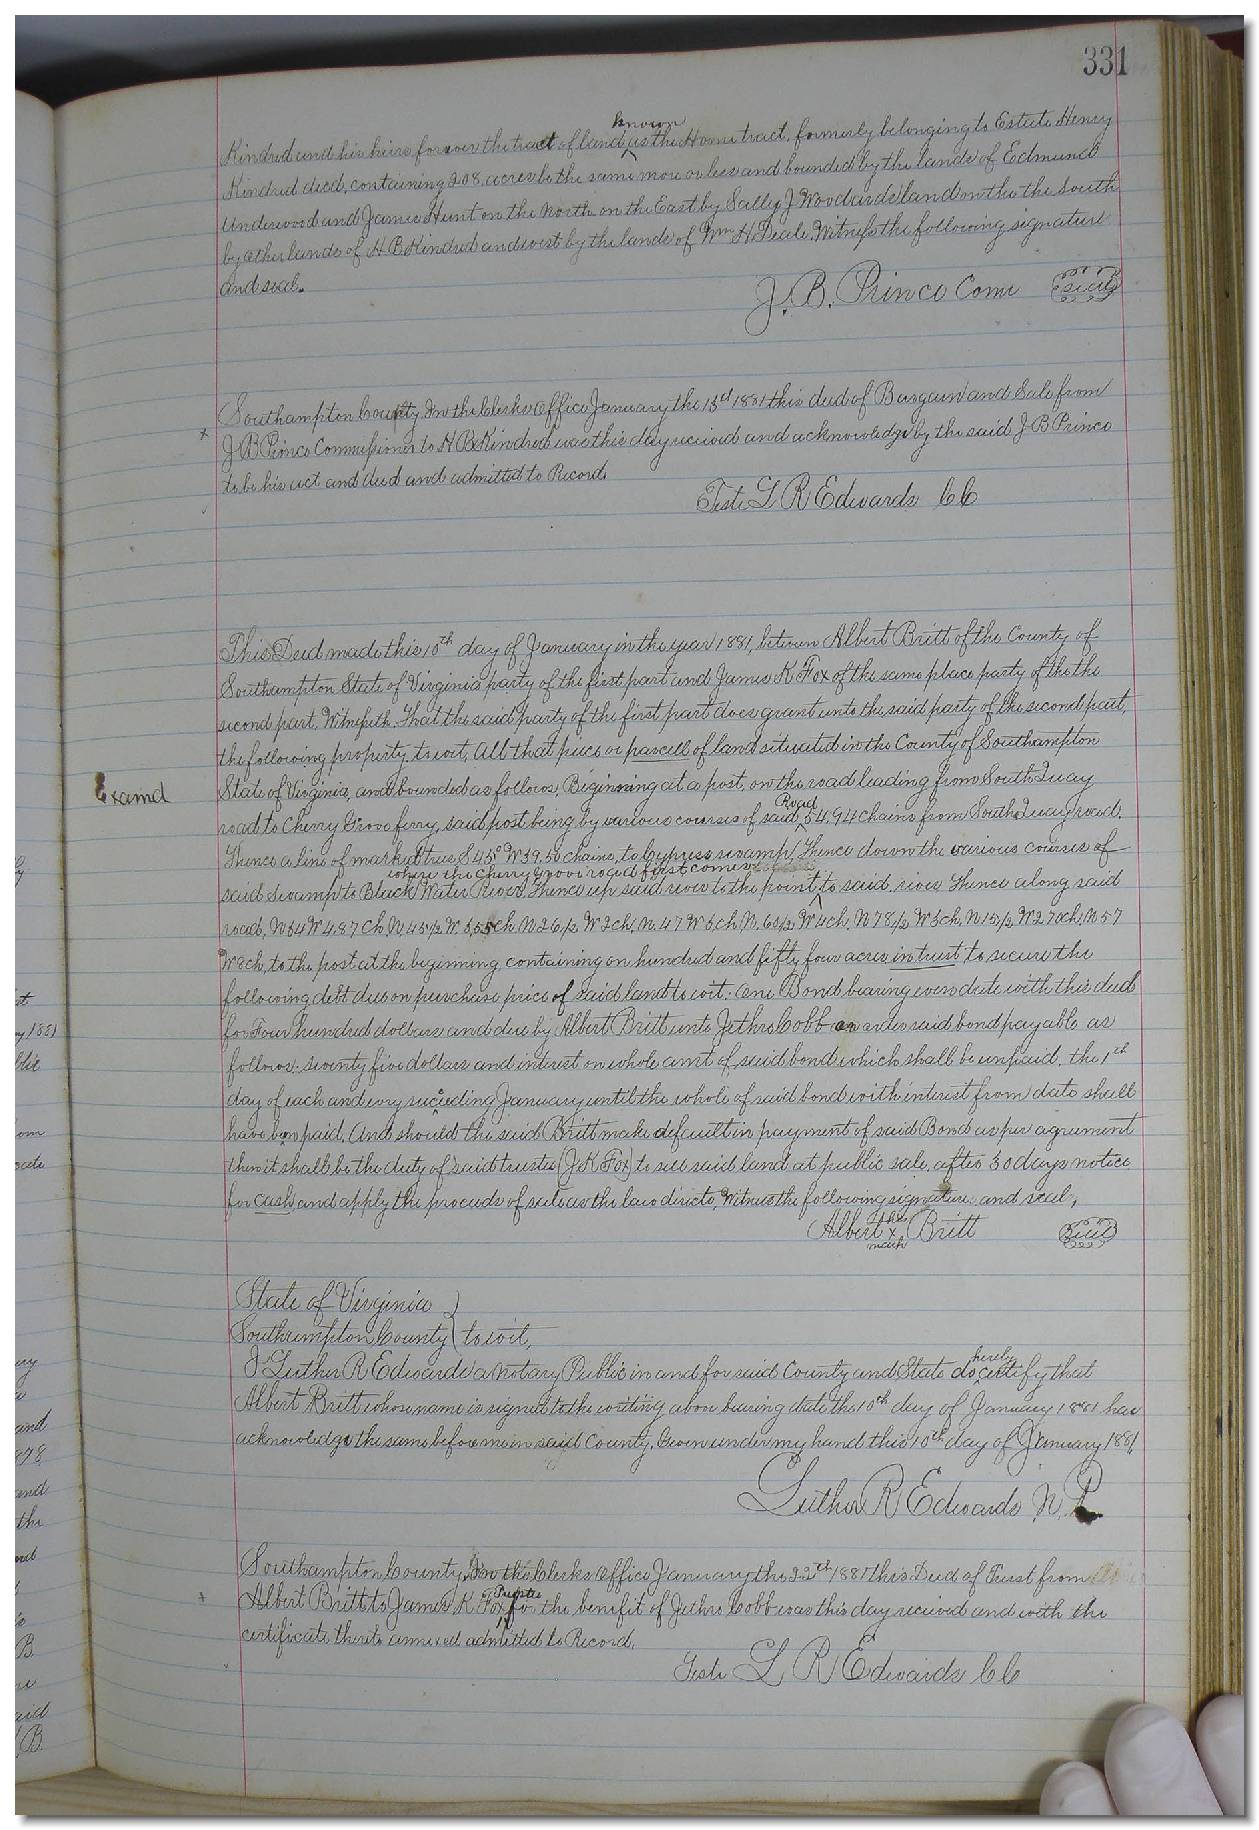 331
known
Kindred and his heirs forever the tract of land as the Home tract, formerly belonging to Estate Henry
Kindred decd, containing 208 acres be the same more or less and bounded by the lands of Edmund
Underwood and James Hunt on the North on the East by Sally J Woodards land on the the South
by other lands of H B Kindred and west by the lands of Wm H Deale. Witness the following signature
and seal.
J. B. Prince Comr Seal
Southampton County In the Clerks Office January the 13th 1881 this deed of Bargain and Sale from
J B Prince Commissioner to H B Kindred was this day received and acknowledge by the said J B Prince
to be his act and deed and admitted to Record.
Teste L R Edwards CC
This Deed made this 10th day of January in the year 1881, between Albert Britt of the County of
Southampton State of Virginia party of the first part and James K Fox of the same place party of the the
second part. Witnesseth. That the said party of the first part does grant unto the said party of the second part,
the following property, to wit, All that piece or parcell of land situated in the County of Southampton
State of Virginia, and bounded as follows, Beginning at a post, on the road leading from South Quay
Examd
Road
road to Cherry Grove ferry, said post being by various courses of said 54.94 chains from South Quay road.
Thence a line of marked trees S 45° W 39.50 chains, to Cypress swamp, Thence down the various courses of
where the Cherry Grove road first comes
said swamp to Black Water River, Thence up said river to the point to said river Thence along said
road, N 54 W 4.87 Ch N 45 1/2 W 5.55 ch N 26 1/2 W 2 ch, N. 47 W 5 ch N. 60 1/2 W 4 ch, N 78 1/2 W 3 ch, N 15 1/2 W 2.70 ch, N 57
W 2 ch, to the post at the beginning containing on hundred and fifty four acres in trust to secure the
following debt due on purchase price of said land to wit: One Bond bearing even date with this deed
for Four hundred dollars and due by Albert Britt unto Jethro Cobb or order said bond payable as
follows: seventy five dollars and interest on whole amt of said bond which shall be unpaid, the 1th
day of each and evry suceeding January until the whole of said bond with interest from date shall
have ben paid. And should the said Britt make default in payment of said Bond as per agrement
then it shall be the duty of said trustee (J. K. Fox) to sell said land at public sale, after 30 days notice
for cash and apply the proceeds of sale as the law directs, Witness the following signature and seal,
his
Albert x Britt Seal
mark
State of Virginia
Southampton County to wit,
hereby
I Luther R Edwards a notary Public in and for said County and State do certify that
Albert Britt whose name is signed to the writing above bearing date the 10th day of January 1881 has
acknowledge the same before me in said County. Given under my hand this 10th day of January 1881
Luther R Edwards N. P.
Southampton County, In the Clerks Office January the 22th 1881 this Deed of Trust from
Trustee
Albert Britt to James K. Fox for the benefit of Jethro Cobb was this day received and with the
certificate thereto annexed admitted to Record.
Teste L R Edwards CC